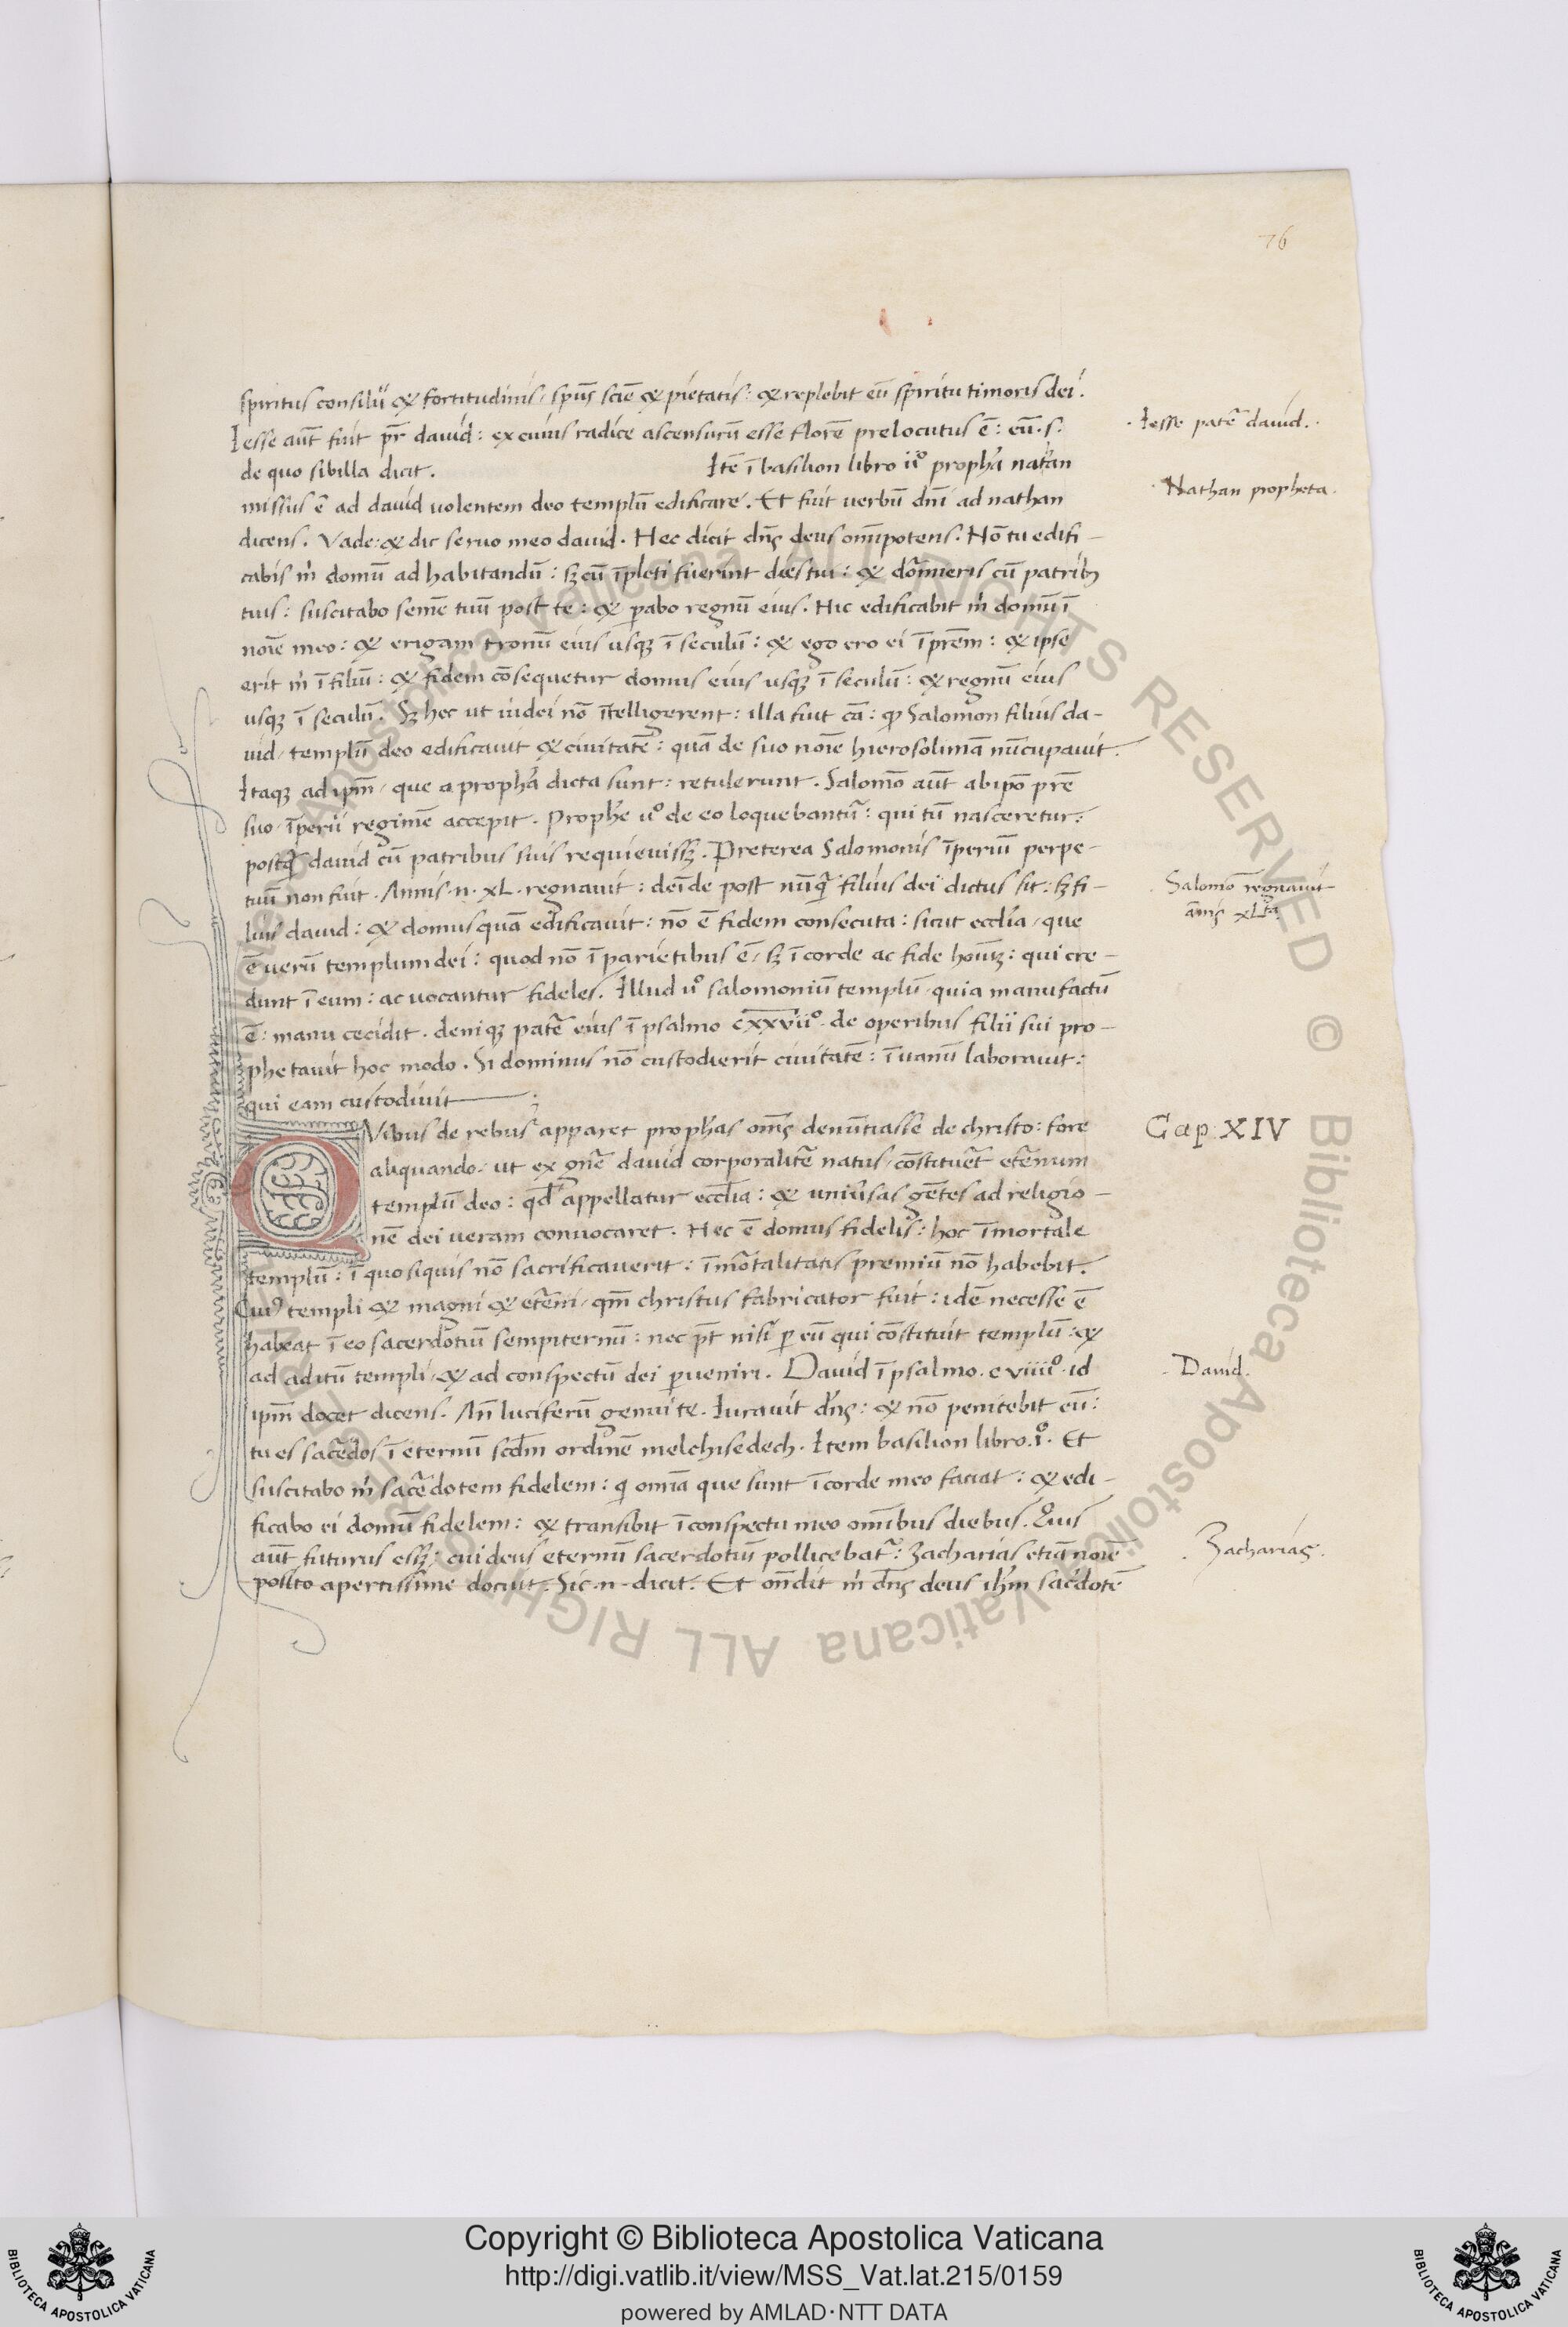 76
spiritus consilii & fortitudinis, spūs sciē & pietatis: & replebit eū spiritu timoris dei.
Iesse aūt fuit pr̄ david: ex cuius radice ascensurū esse florē prelocutus ē: eū.s.
de quo sibilla dicit. Itē ī basilion libro iiº propha natan
missus ē ad david volentem deo templū edificare. Et fuit verbū dn̄i ad nathan
dicens. Vade: & dic servo meo david. Hec dicit dn̄s deus om̄ipotens. Nō tu edifi-
cabis m̄ domū ad habitandū: sꝫ cū īpleti fuerint dies tui: & dormieris cū patribꝫ
tuis: suscitabo semē tuū post te: & parabo regnū eius. Hic edificabit m̄ domū ī
noīe meo: & erigam tronū eius usqꝫ ī seculū: & ego ero ei ī prēm: & ipse
erit m̄ ī filiū: & fidem cōsequetur domus eius usqꝫ ī seculū: & regnū eius
usqꝫ ī seculū. Sꝫ hec ut iudei nō ītelligerent: illa fuit cā: qꝫ Salomon filius da-
vid, templū deo edificavit & civitatē: quā de suo noīe hierosolimā nūcupavit.
Itaqꝫ ad ipm̄, que a propha dicta sunt: retulerunt. Salomō aūt ab ipō prē
suo, īperii regimē accepit. Prophe vº de eo loquebantur̄: qui tū nasceretur:
postqꝫ david cū patribus suis requievissꝫ. Preterea Salomonis īperiū perpe-
tuū non fuit. Annis.n.xL. regnavit: deīde post nūqꝫ filius dei dictus sit: sꝫ fi-
lius david: & domus quā edificavit: nō ē fidem consecuta: sicut ecclīa, que
ē verū templum dei: quod nō ī parietibus ē, sꝫ ī corde ac fide hoīuꝫ: qui cre-
dunt ī eum: ac vocantur fideles. Illud vº salomoniū templū, quia manu factū
ē: manu cecidit. deniqꝫ patē eius ī psalmo cxxviiº. de operibus filii sui pro-
phetavit hoc modo. Si dominus nō custodierit civitatē: ī vanū laboravit:
qui eam custodivit
QVibus de rebus apparet prophas om̄s denūtiasse de christo: fore
aliquando, ut ex gn̄e david corporalitē natus, cōstituēt etēnum
templū deo: qd̄ appellatur ecclīa: & universas gētes ad religio-
nē dei veram convocaret. Hec ē domus fidelis: hoc īmortale
templū: ī quo siquis nō sacrificaverit: īmōtalitatis premiū nō habebit.
Cuiꝰ templi & magni & etēni, qm̄ christus fabricator fuit: idē necesse ē
habeat ī eo sacerdotiū sempiternū: nec pt̄ nisi p eū qui cōstituit templū: &
ad aditū templi, & ad conspectū dei pvenire. David ī psalmo. cviiiiº. id
ipm̄ docet dicens. An̄ luciferū genui te. Iuravit dn̄s: & nō penitebit eū:
tu es sacēdos ī eternū scdm̄ ordinē melchisedech. Item basilion libro.iº. Et
suscitabo m̄ sacēdotem fidelem: qi omīa que sunt ī corde meo faciat: & edi-
ficabo ei domū fidelem: & transibit ī conspectu meo omībus diebus. Quis
aūt futurus essꝫ: cui deus eternū sacerdotiū pollicebat̄: Zacharias etiā noīe
posito apertissime docuit. Sic.n.dicit. Et on̄dit m̄ dn̄s deus ihm̄ sacēdotē
. Iesse patē david.
. Nathan propheta.
. Salomō regnavit
annis xLta
Cap. XIV
. David.
. Zacharias.
Copyright © Biblioteca Apostolica Vaticana
http://digi.vatlib.it/view/MSS_Vat.lat.215/0159
powered by AMLAD·NTT DATA
BIBLIOTECA APOSTOLICA VATICANA
BIBLIOTECA APOSTOLICA VATICANA
Biblioteca Apostolica Vaticana ALL RIGHTS RESERVED ©